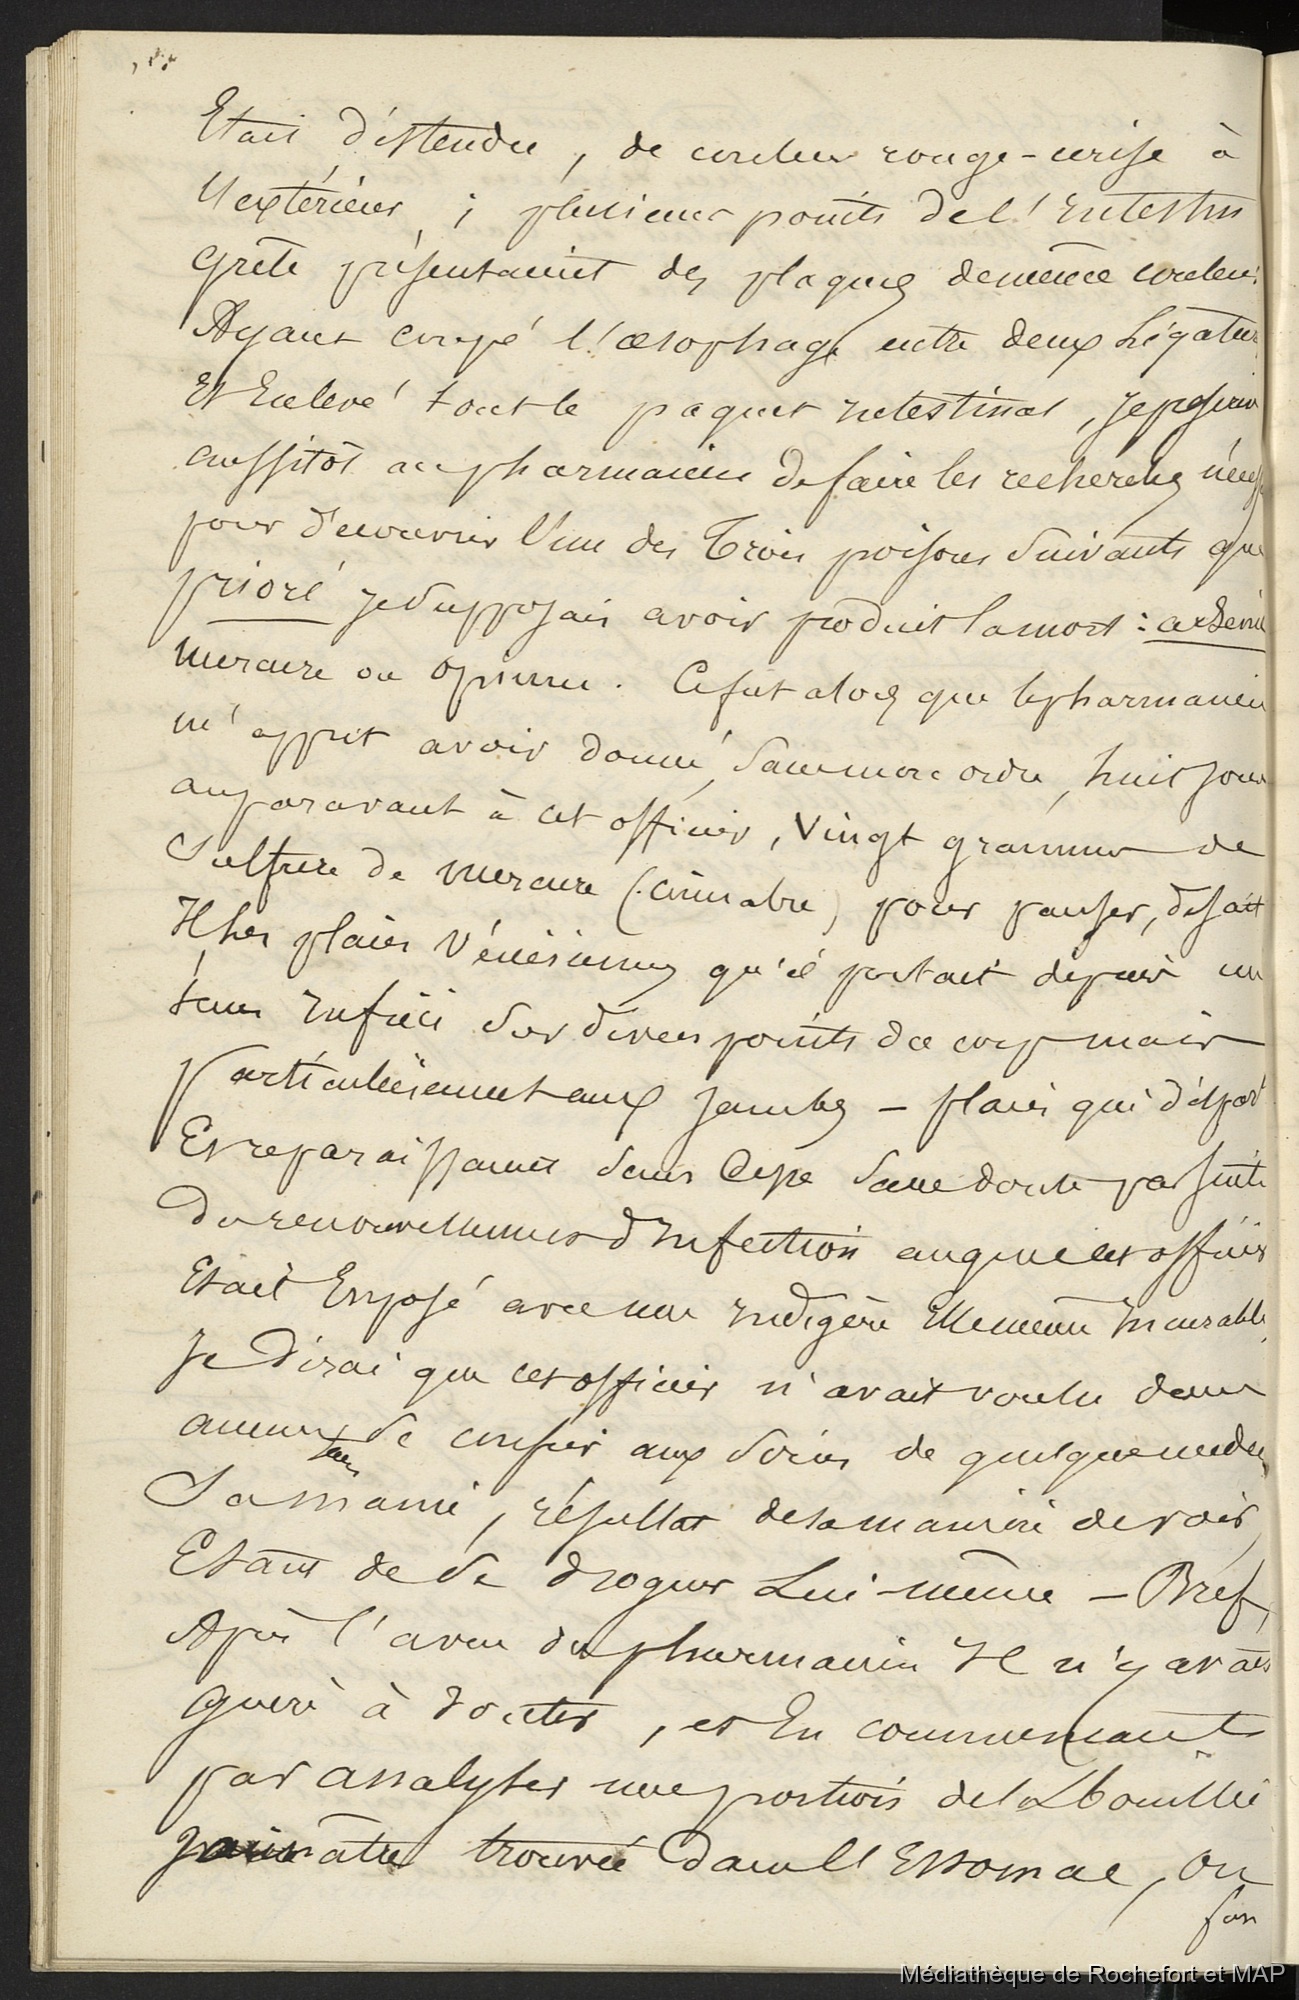 Etait distendu, de couleur rouge-cerise à
l'extérieur ; plusieurs points de l'intestin
Grêle présentaient des plaques de même couleur.
Ayant coupé l'œsophage entre deux Ligatures
Et Enlevé tout le paquet intestinal, je prescrivis
aussitôt au pharmacien de faire les recherches
pour découvrir l'un des Trois poisons Suivants que
priori je Supposais avoir produit la mort : arsenic
Mercure ou Opium. Ce fut alors que le pharmacien
m'apprit avoir donné, sans mon ordre, huit jours
auparavant à cet officier, Vingt grammes de
Sulfure de Mercure (cinnabre) pour panser, disait
Il, les plaies Vénériennes qu'il portait depuis un
tems Infini Sur divers points du corps mais
particulièrement aux Jambes – plaies qui
Et reparaissaient Sans Cesse Sans doute par suite
Du renouvellement d'Infection auquel cet officier
Etait Exposé avec une Indigène Elle même Incurable.
Je Dirai que cet officier n'avait voulu dans
aucun tems Se confier aux Soins de quelque médecin
Sa manie, résultat de sa manière de voir,
Etant de Se droguer Lui-même – Bref,
Après l'aveu du pharmacien Il n'y avait
Guère à Douter, et En commençant
par analyser une portion de la bouillie
jaunâtre trouvée Dans l'Estomac, On
son
Médiathèque de Rochefort et MAP